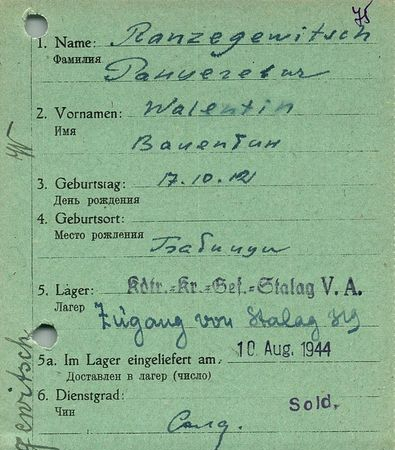 75
1. Name: Ranzegewitsch
Фамилия
Ранцегевич
2. Vornamen: Walentin
Имя
Валентин
3. Geburtstag: 17.10.12
День рождения
4. Geburtsort:
Место рождения
5. Lager: Kdtr.=Kr.=Gef.=Stalag V. A.
Лагер
Zugang von Stalag
5a. Im Lager eingeliefert am 10 Aug. 1944
Доставлен в лагер (число)
6. Dienstgrad: Sold.
Чин
Солд.
gewitsch